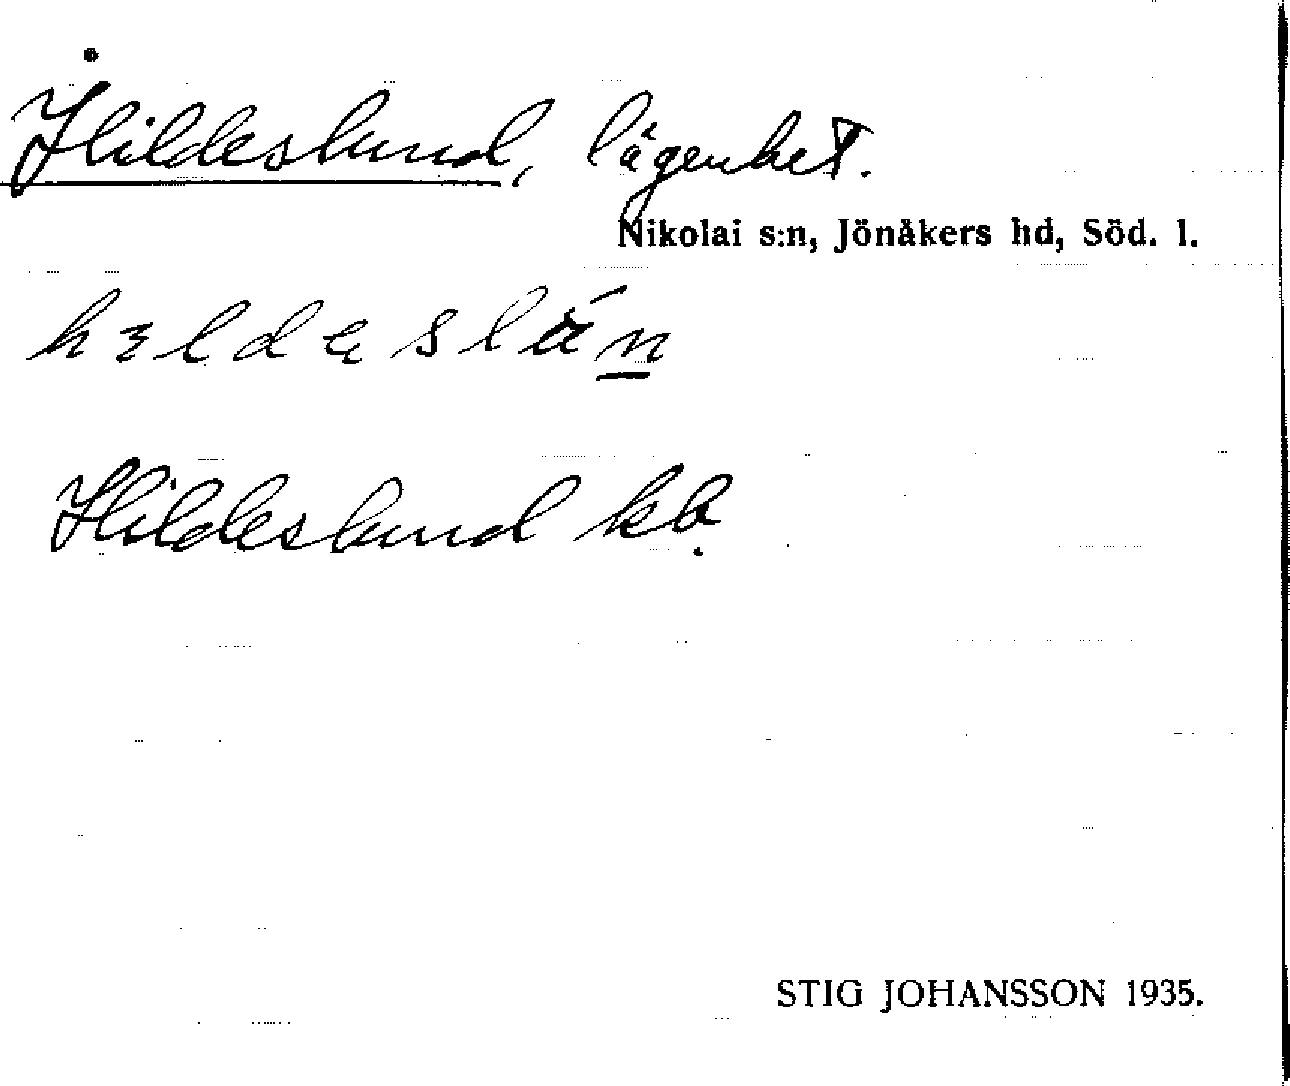 Hildeslund, lägenhet.
Nikolai s:n, Jönåkers hd, Söd. l.
Hildeslund kb.
STIG JOHANSSON 1935.